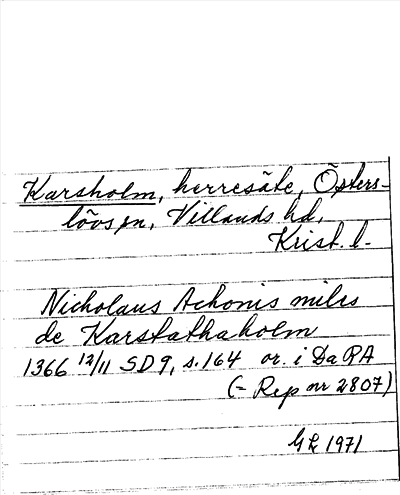 Karsholm, herresäte, Östers-
lövs sn, Villands hd,
Krist. l.
Nicholaus Achonis miles
de Karstathaholm
1366 12/11 SD 9, s. 164 or. i Da RA
(= Rep nr 2807)
GL 1971